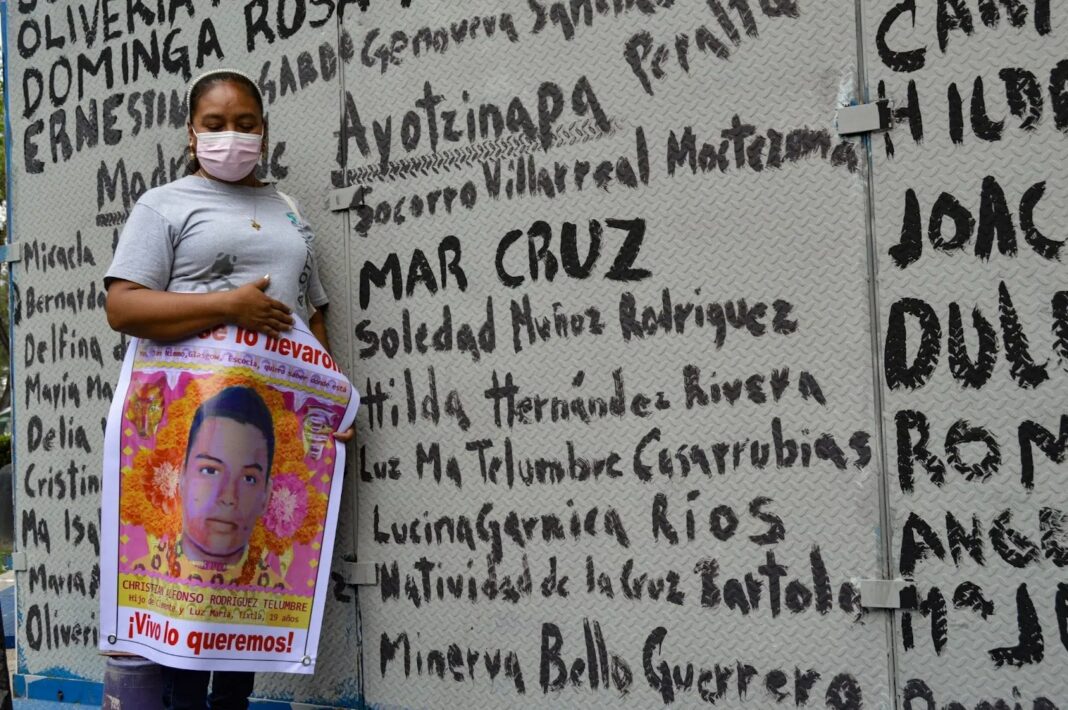 OLIVERIA
DOMINGA ROSA
ERNESTINA GARDO
Madre
Micaela
Bernarda
Delfina d
María Ma
Delia
Cristin
Ma Isa
María
Oliveri
Genoveva Sán
Peralta
Ayotzinapa
Socorro Villarreal Moctezuma
MAR CRUZ
Soledad Muñoz Rodriguez
Hilda Hernández Rivera
Luz Ma Telumbre Casarrubias
Lucina Garnica Ríos
Natividad de la Cruz Bartolo
Minerva Bello Guerrero
CAR
HILDE
JOAC
DUL
ROM
ANGE
Mª J
se lo llevaron
Glasgow, Escocia, quiero saber donde está
CHRISTIAN ALFONSO RODRIGUEZ TELUMBRE
Hijo de Clemente y Luz María, Tixtla, 19 años
¡Vivo lo queremos!